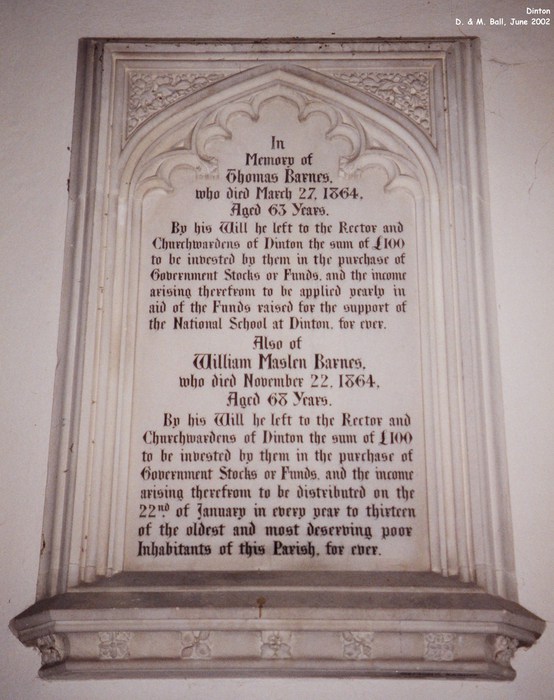 Dinton
D. & M. Ball, June 2002
In
Memory of
Thomas Barnes,
who died March 27, 1864,
Aged 63 Years.
By his Will he left to the Rector and
Churchwardens of Dinton the sum of £100
to be invested by them in the purchase of
Government Stocks or Funds, and the income
arising therefrom to be applied yearly in
aid of the Funds raised for the support of
the National School at Dinton, for ever.
Also of
William Maslen Barnes,
who died November 22, 1864,
Aged 68 Years.
By his Will he left to the Rector and
Churchwardens of Dinton the sum of £100
to be invested by them in the purchase of
Government Stocks or Funds, and the income
arising therefrom to be distributed on the
22nd. of January in every year to thirteen
of the oldest and most deserving poor
Inhabitants of this Parish, for ever.